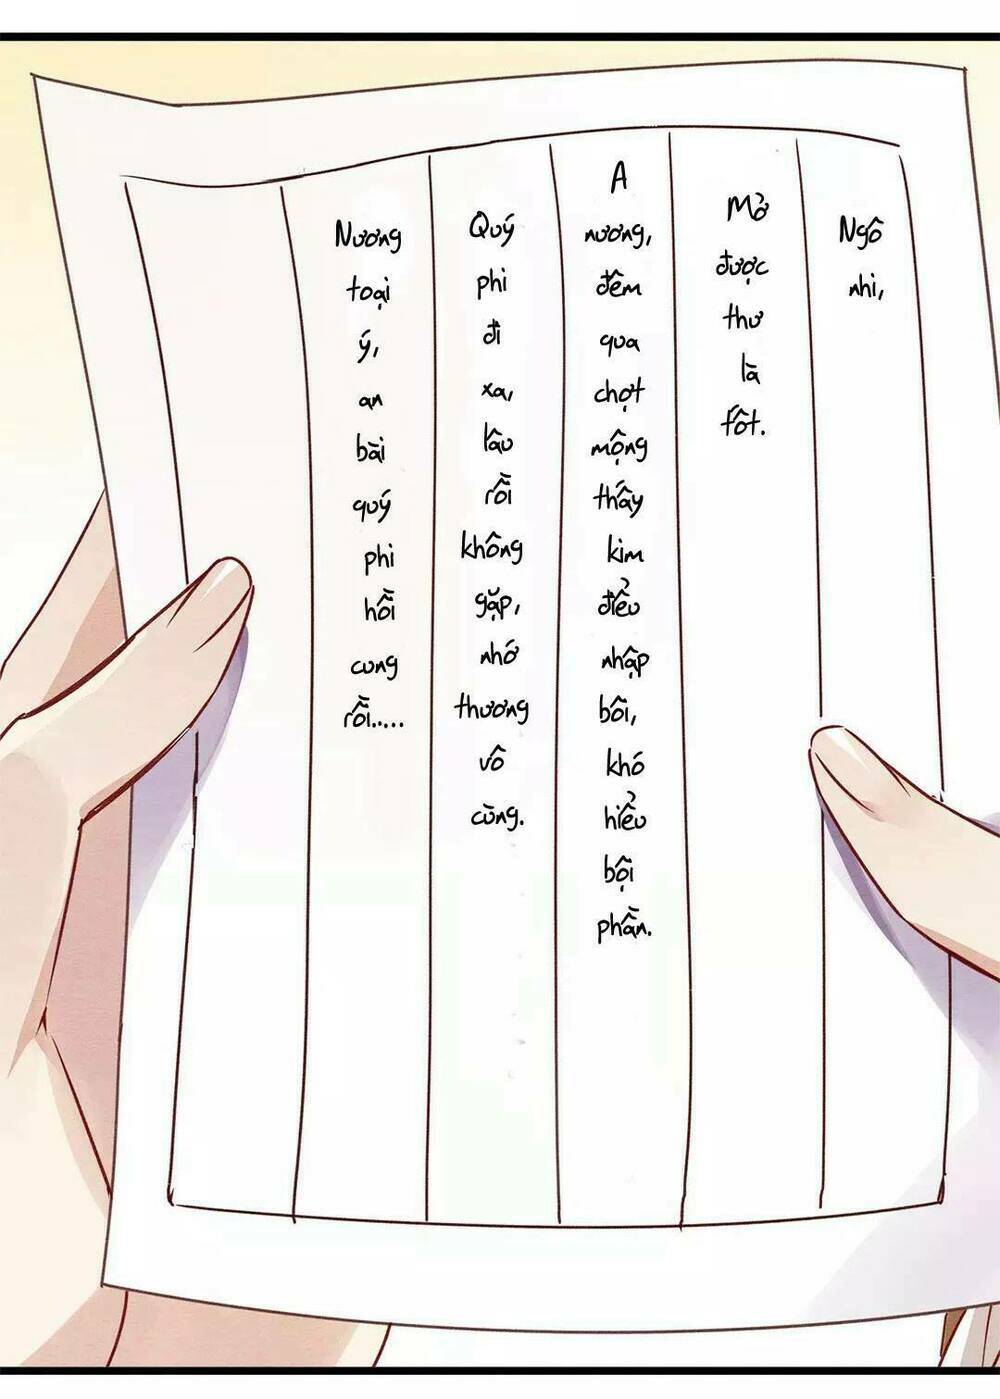 Ngô nhi,
Mở được thư là tốt.
A nương, đêm qua chợt mộng thấy kim điểu nhập bôi, khó hiểu bội phần.
Quý phi đi xa, lâu rồi không gặp, nhớ thương vô cùng.
Nương toại ý, an bài quý phi hồi cung rồi.....